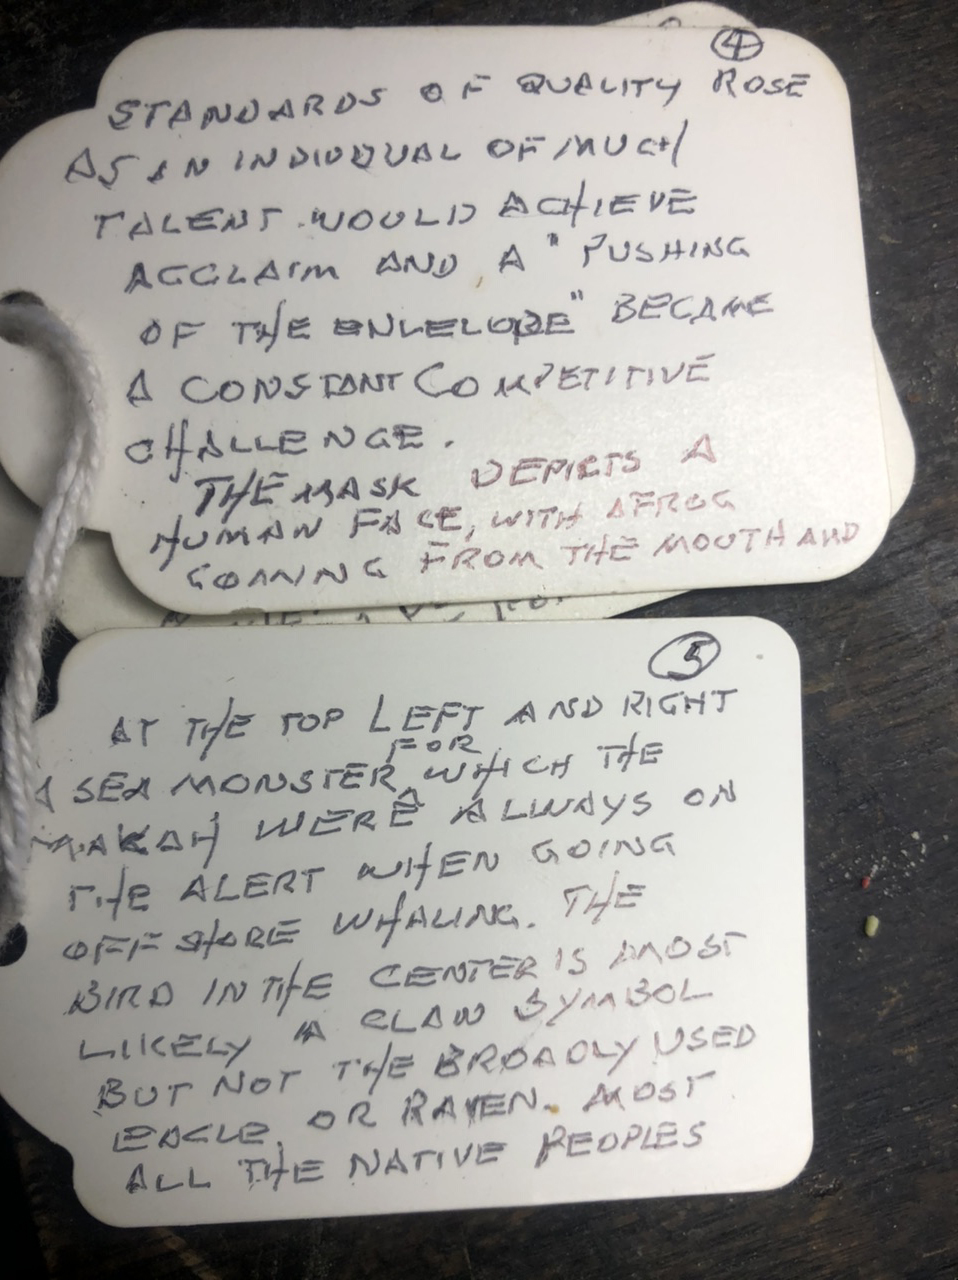 4
STANDARDS OF QUALITY ROSE
AS AN INDIVIDUAL OF MUCH
TALENT WOULD ACHIEVE
ACCLAIM AND A "PUSHING
OF THE ENVELOPE" BECAME
A CONSTANT COMPETITIVE
CHALLENGE.
THE MASK DEPICTS A
HUMAN FACE, WITH A FROG
COMING FROM THE MOUTH AND
5
AT THE TOP LEFT AND RIGHT
FOR
A SEA MONSTER WHICH THE
MAKAH WERE ALWAYS ON
THE ALERT WHEN GOING
OFF SHORE WHALING. THE
BIRD IN THE CENTER IS AMOST
LIKELY A CLAN SYMBOL
BUT NOT THE BROADLY USED
EAGLE, OR RAVEN. MOST
ALL THE NATIVE PEOPLES